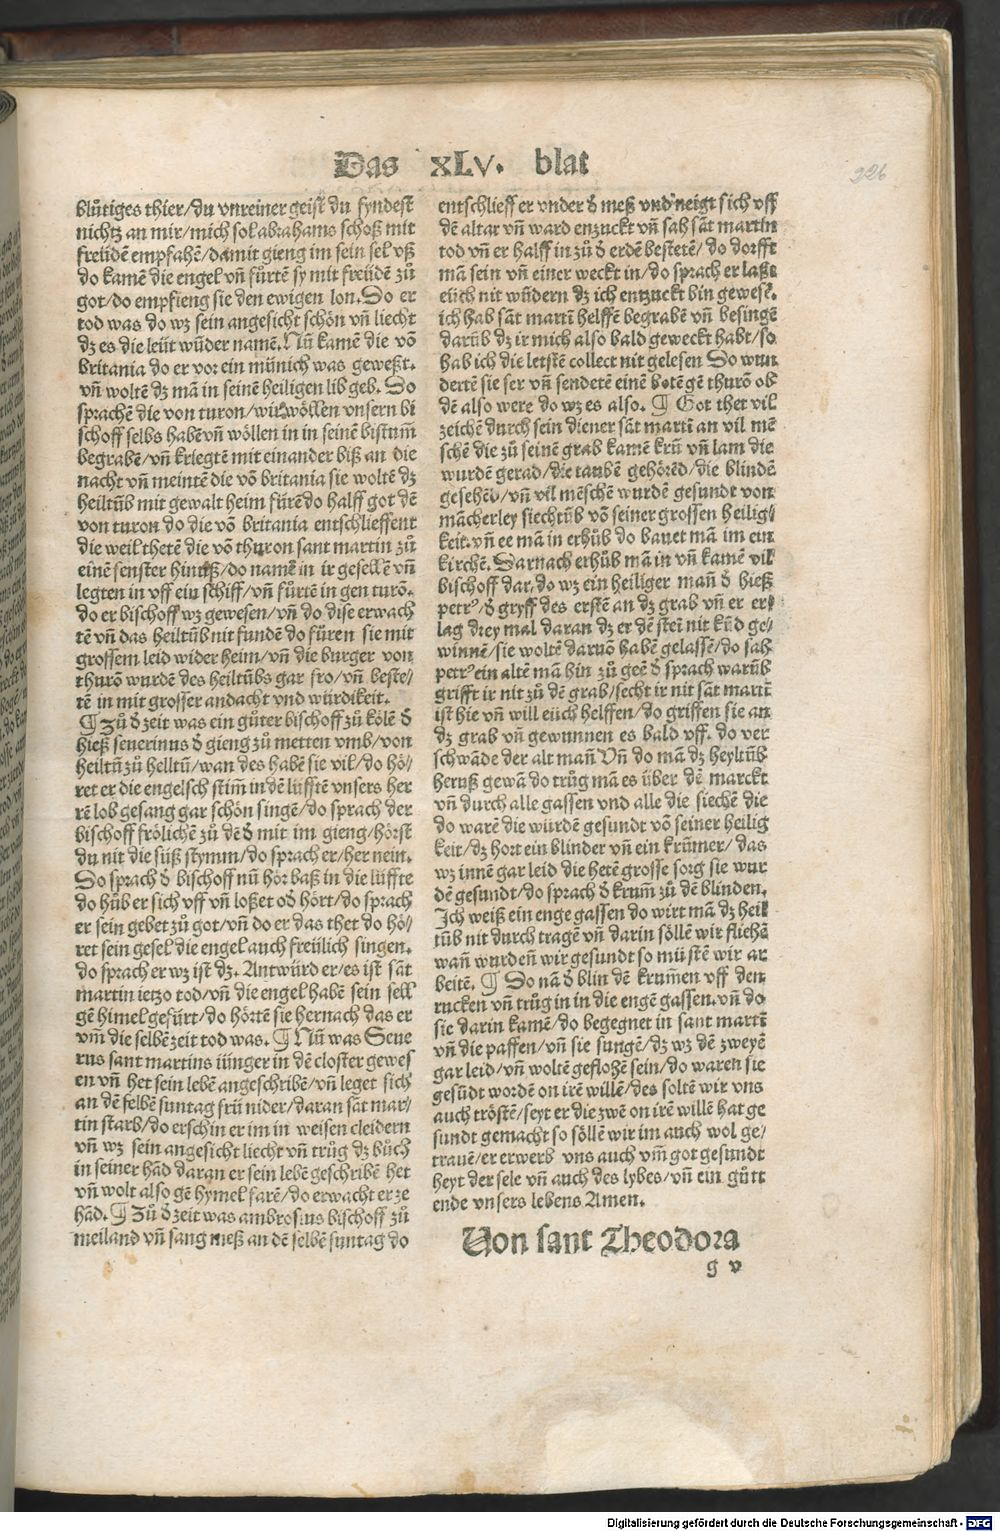 Das xLv. blat
226
blůtiges thier/du vnreiner geist du fyndest
nichtz an mir/mich sol abrahams schoß mit
freüden empfahē/damit gieng im sein sel vß
do kamē die engel vñ fůrtē sy mit freüdē zů
got/do empfieng sie den ewigen lon. So er
tod was do wz sein angesicht schön vñ liecht
dz es die leüt wūder namē. Nū kamē die vō
britania do er vor ein münich was geweßt.
vñ woltē dz mā in seinē heiligen lib geb. So
sprachē die von turon/wir wöllen vnsern bi
schoff selbs habē vñ wöllen in in seinē bistum̄
begrabē/vñ kriegtē mit einander biß an die
nacht vñ meintē die vō britania sie woltē dz
heiltūb mit gewalt heim fürē do halff got dē
von turon do die vō britania entschlieffent
die weil thetē die vō thuron sant martin zů
einē fenster hinuß/do namē in ir gesellē vñ
legten in vff ein schiff/vñ fürtē in gen turō.
do er bischoff wz gewesen/vñ do dise erwach
tē vñ das heiltūb nit fundē do füren sie mit
grossem leid wider heim/vñ die burger von
thurō wurdē des heiltūbs gar fro/vñ beste/
tē in mit grosser andacht vnd würdikeit.
¶ Zů d̄ zeit was ein gůter bischoff zů kölē d̄
hieß seuerinus d̄ gieng zů metten vmb/von
heiltū zů helltū/wan des habē sie vil/do hö/
ret er die engelsch stim̄ in dē lüfftē vnsers her
rē lob gesang gar schön singē/do sprach der
bischoff frölichē zů dē d̄ mit im gieng/hörst
du nit die süß stymm/do sprach er/her nein.
So sprach d̄ bischoff nū hör baß in die lüffte
do hůb er sich vff vñ loßet od̄ hört/do sprach
er sein gebet zů got/vñ do er das thet do hö/
ret sein gesel die engel auch freülich singen.
do sprach er wz ist dz. Antwürd er/es ist sāt
martin ietzo tod/vñ die engel habē sein sell
gē himel gefürt/do hörtē sie hernach das er
vm̄ die selbē zeit tod was. ¶ Nū was Seue
rus sant martins iünger in dē closter gewes
en vñ het sein lebē angeschribē/vñ leget sich
an dē selbē suntag frü nider/daran sāt mar/
tin starb/do erschin er im in weisen cleidern
vñ wz sein angesicht liecht vñ trůg dz bůch
in seiner hād daran er sein lebē geschribē het
vñ wolt also gē hymel farē/do erwacht er ze
hād. ¶ Zů d̄ zeit was ambrosius bischoff zů
meiland vñ sang meß an dē selbē suntag do
entschlieff er vnder d̄ meß vnd neigt sich vff
dē altar vñ ward enzuckt vñ sah sāt martin
tod vñ er halff in zů d̄ erdē bestetē/do dorfft
mā sein vñ einer weckt in/do sprach er laßt
eüch nit wūdern dz ich entzuckt bin gewesē.
ich hab sāt martī helffē begrabē vñ besingē
darūb dz ir mich also bald geweckt habt/so
hab ich die letstē collect nit gelesen So wun
dertē sie ser vñ sendetē einē botē gē thurō ob
dē also were do wz es also. ¶ Got thet vil
zeichē durch sein diener sāt martī an vil mē
schē die zů seinē grab kamē krū vñ lam die
wurdē gerad/die taubē gehörēd/die blindē
gesehēd/vñ vil mēschē wurdē gesundt von
mācherley siechtūb vō seiner grossen heilig/
keit. vñ ee mā in erhůb do bauet mā im ein
kirchē. Darnach erhůb mā in vñ kamē vil
bischoff dar, do wz ein heiliger mañ d̄ hieß
petrꝰ/d̄ gryff des erstē an dz grab vñ er er/
lag drey mal daran dz er dē stei nit kūd ge/
winnē/sie woltē daruō habē gelassē/do sah
petrꝰ ein altē mā hin zů geē d̄ sprach warūb
grifft ir nit zů dē grab/secht ir nit sāt martī
ist hie vñ will eüch helffen/do griffen sie an
dz grab vñ gewunnen es bald vff. do ver
schwāde der alt mañ Vñ do mā dz heyltūb
heruß gewā do trůg mā es über dē marckt
vñ durch alle gassen vnd alle die siechē die
do warē die würdē gesundt vō seiner heilig
keit/dz hort ein blinder vñ ein krūmer/ das
wz innē gar leid die hetē grosse sorg sie wur
dē gesundt/do sprach d̄ krum̄ zů dē blinden.
Ich weiß ein enge gassen do wirt mā dz heil
tūb nit durch tragē vñ darin söllē wir fliehē
wañ wurdeñ wir gesundt so müstē wir ar
beitē. ¶ So nā d̄ blin dē krum̄en vff den
rucken vñ trůg in in die engē gassen. vñ do
sie darin kamē/do begegnet in sant martī
vñ die paffen/vñ sie sungē/dz wz dē zweyē
gar leid/vñ woltē geflohē sein/do waren sie
gesūdt wordē on irē willē/des soltē wir vns
auch tröstē/seyt er die zwē on irē willē hat ge
sundt gemacht so söllē wir im auch wol ge/
trauē/er erwerb vns auch vm̄ got gesundt
heyt der sele vñ auch des lybes/vñ ein gůtt
ende vnsers lebens Amen.
Von sant Theodora
g v
Digitalisierung gefördert durch die Deutsche Forschungsgemeinschaft - DFG